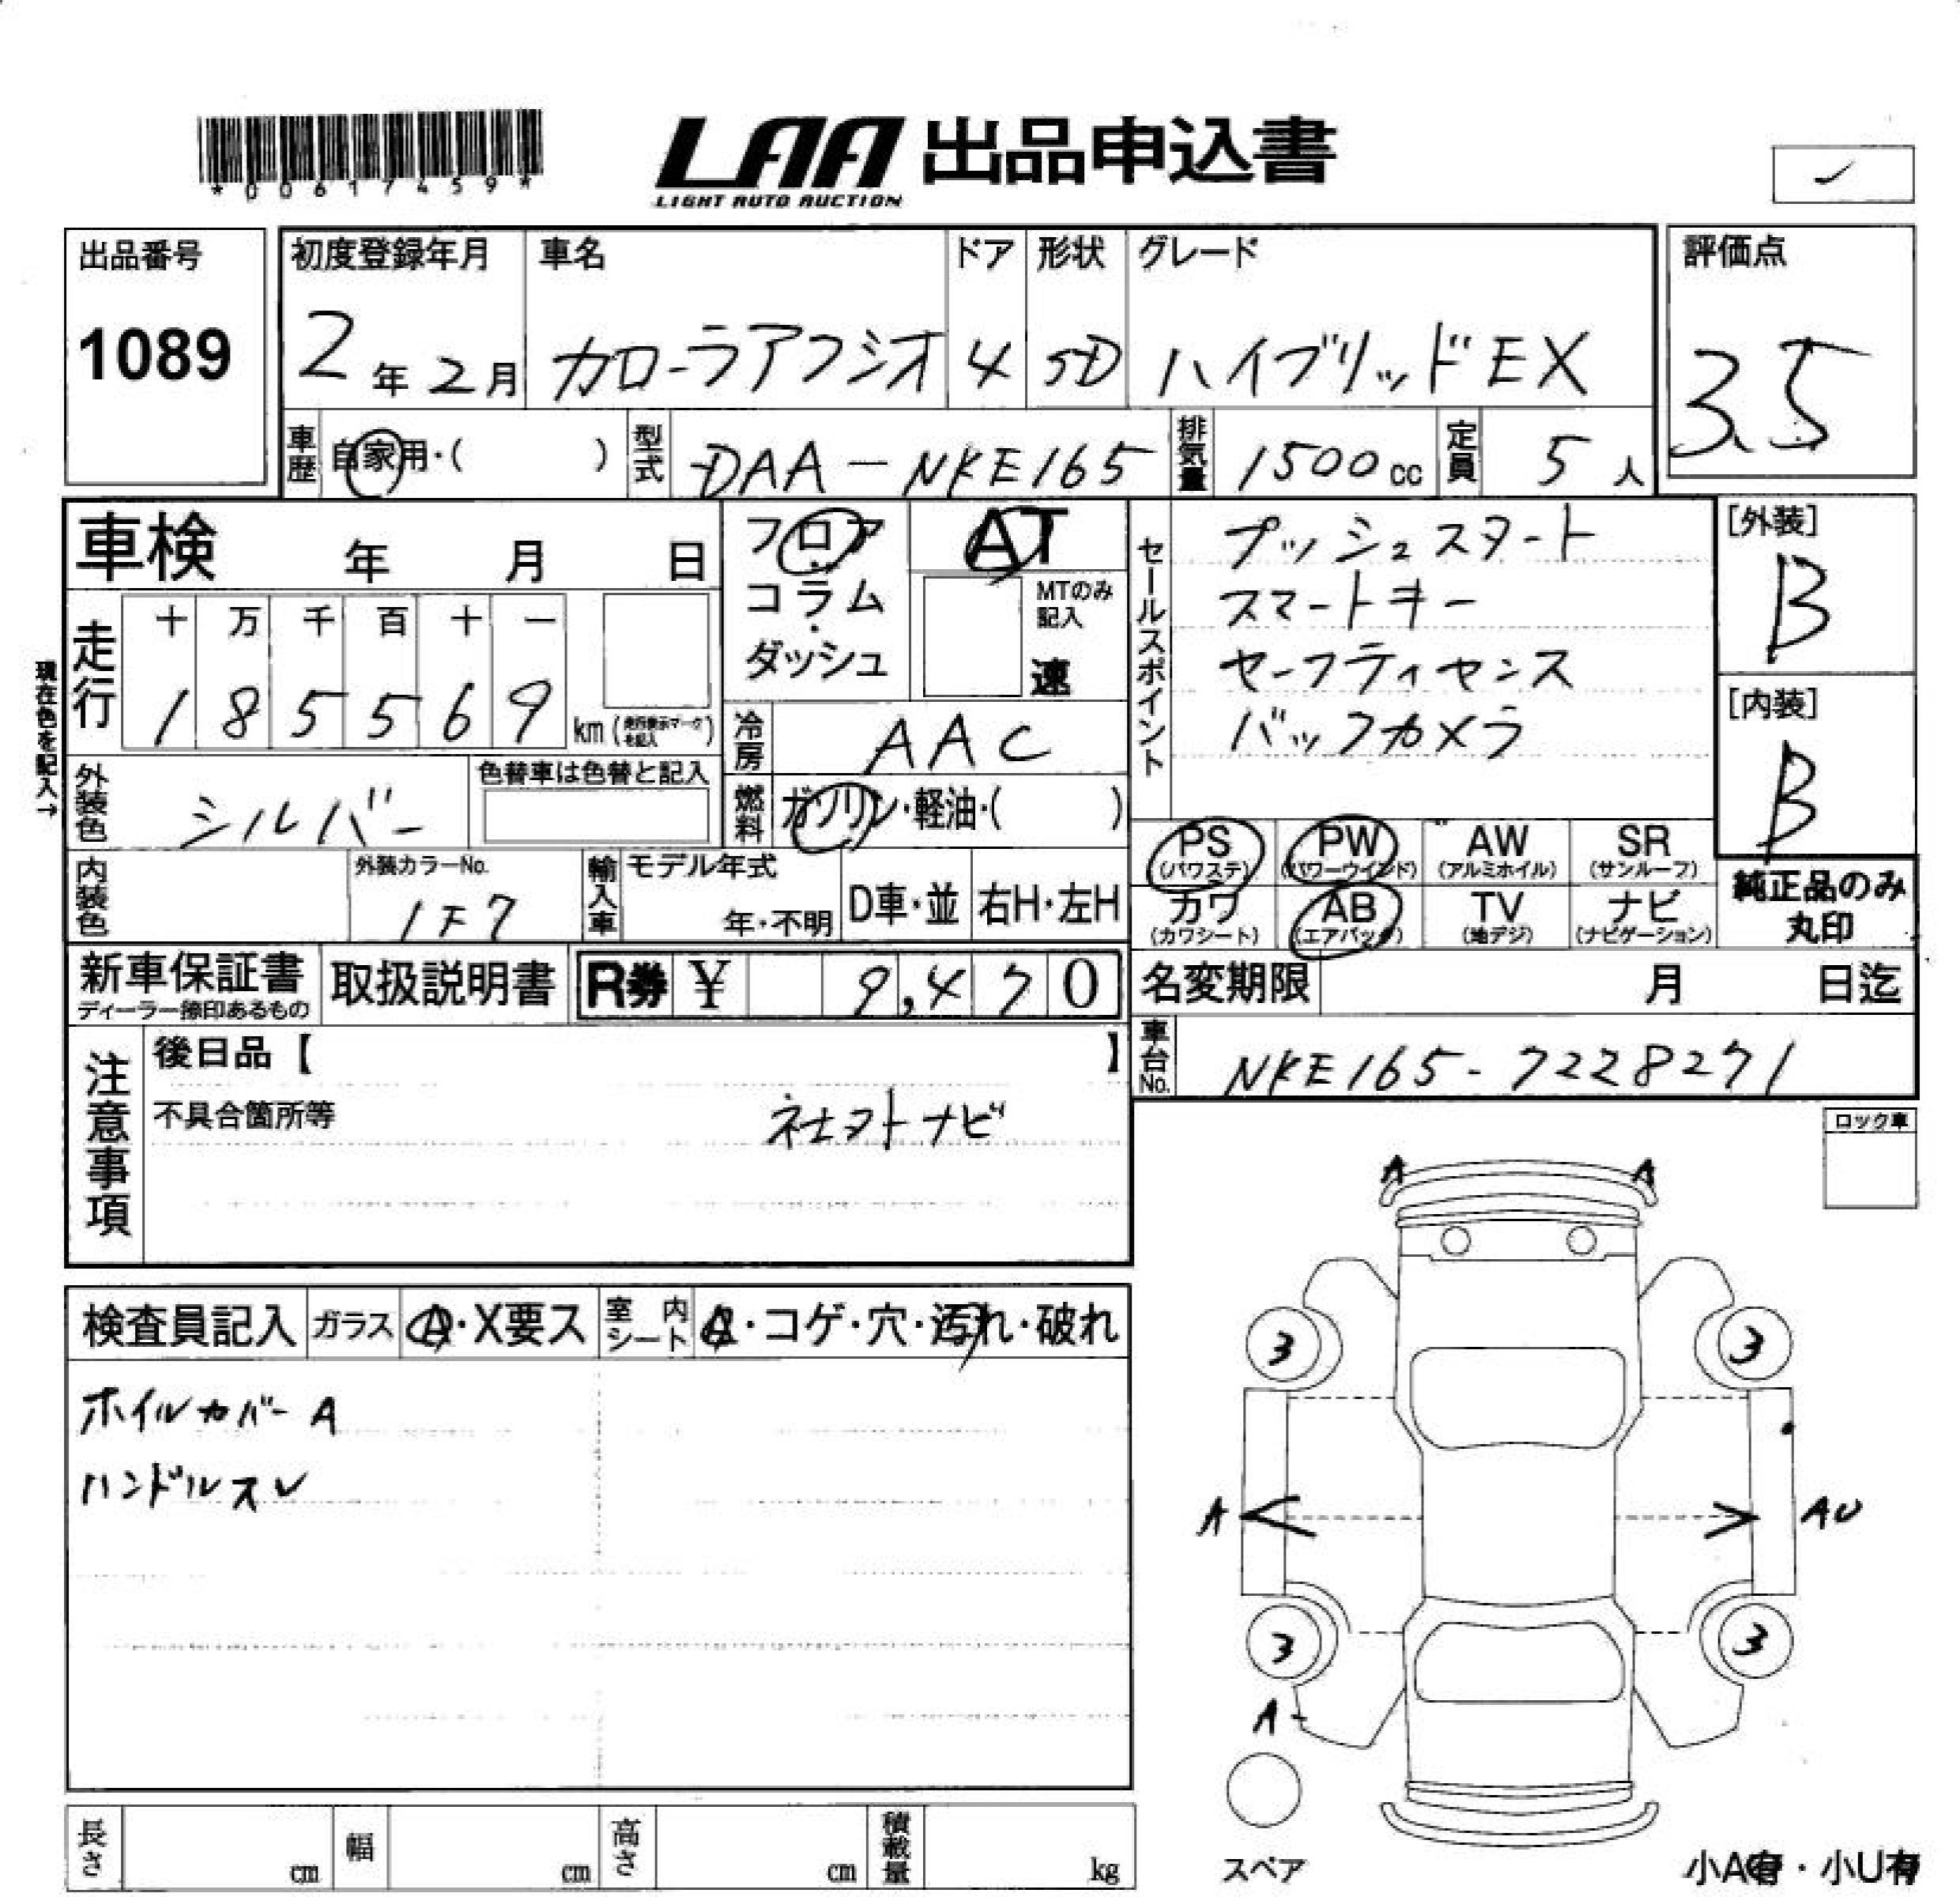 *00617459*
LAA 出品申込書
LIGHT AUTO AUCTION
出品番号 初度登録年月 車名 ドア 形状 グレード 評価点
1089 2年2月 カローラアクシオ 4 SD ハイブリッドEX 3.5
車歴 自家用・( ) 型式 DAA-NKE165 排気量 1500cc 定員 5人
車検 年 月 日
フロア AT
コラム・ MTのみ記入
ダッシュ 速
セールスポイント
プッシュスタート
スマートキー
セーフティセンス
バックカメラ
[外装]
B
[内装]
B
現在色を記入→
走行 十 万 千 百 十 一
1 8 5 5 6 9 km (走行表示マークを記入)
冷房 AAC
外装色 シルバー 色替車は色替と記入
燃料 ガソリン・軽油・( )
PS AW SR
(パワステ) (アルミホイル) (サンルーフ)
PW
(パワーウインド)
カワ AB TV ナビ
(カワシート) (エアバック) (地デジ) (ナビゲーション)
純正品のみ
丸印
内装色 外装カラーNo. 1F7
輸入車 モデル年式 年・不明 D車・並 右H・左H
新車保証書 取扱説明書 R券 ¥ 9,470
ディーラー捺印あるもの
名変期限 月 日迄
車台No. NKE165-7228271
注意事項
後日品【 】
不具合箇所等 社外ナビ
ロック車
検査員記入 ガラス A・X要ス 室内シート ・コゲ・穴・汚れ・破れ
ホイルカバーA
ハンドルスレ
A A
3 3
A AU
3 3
A-
スペア
小A有・小U有
長さ cm 幅 cm 高さ cm 積載量 kg